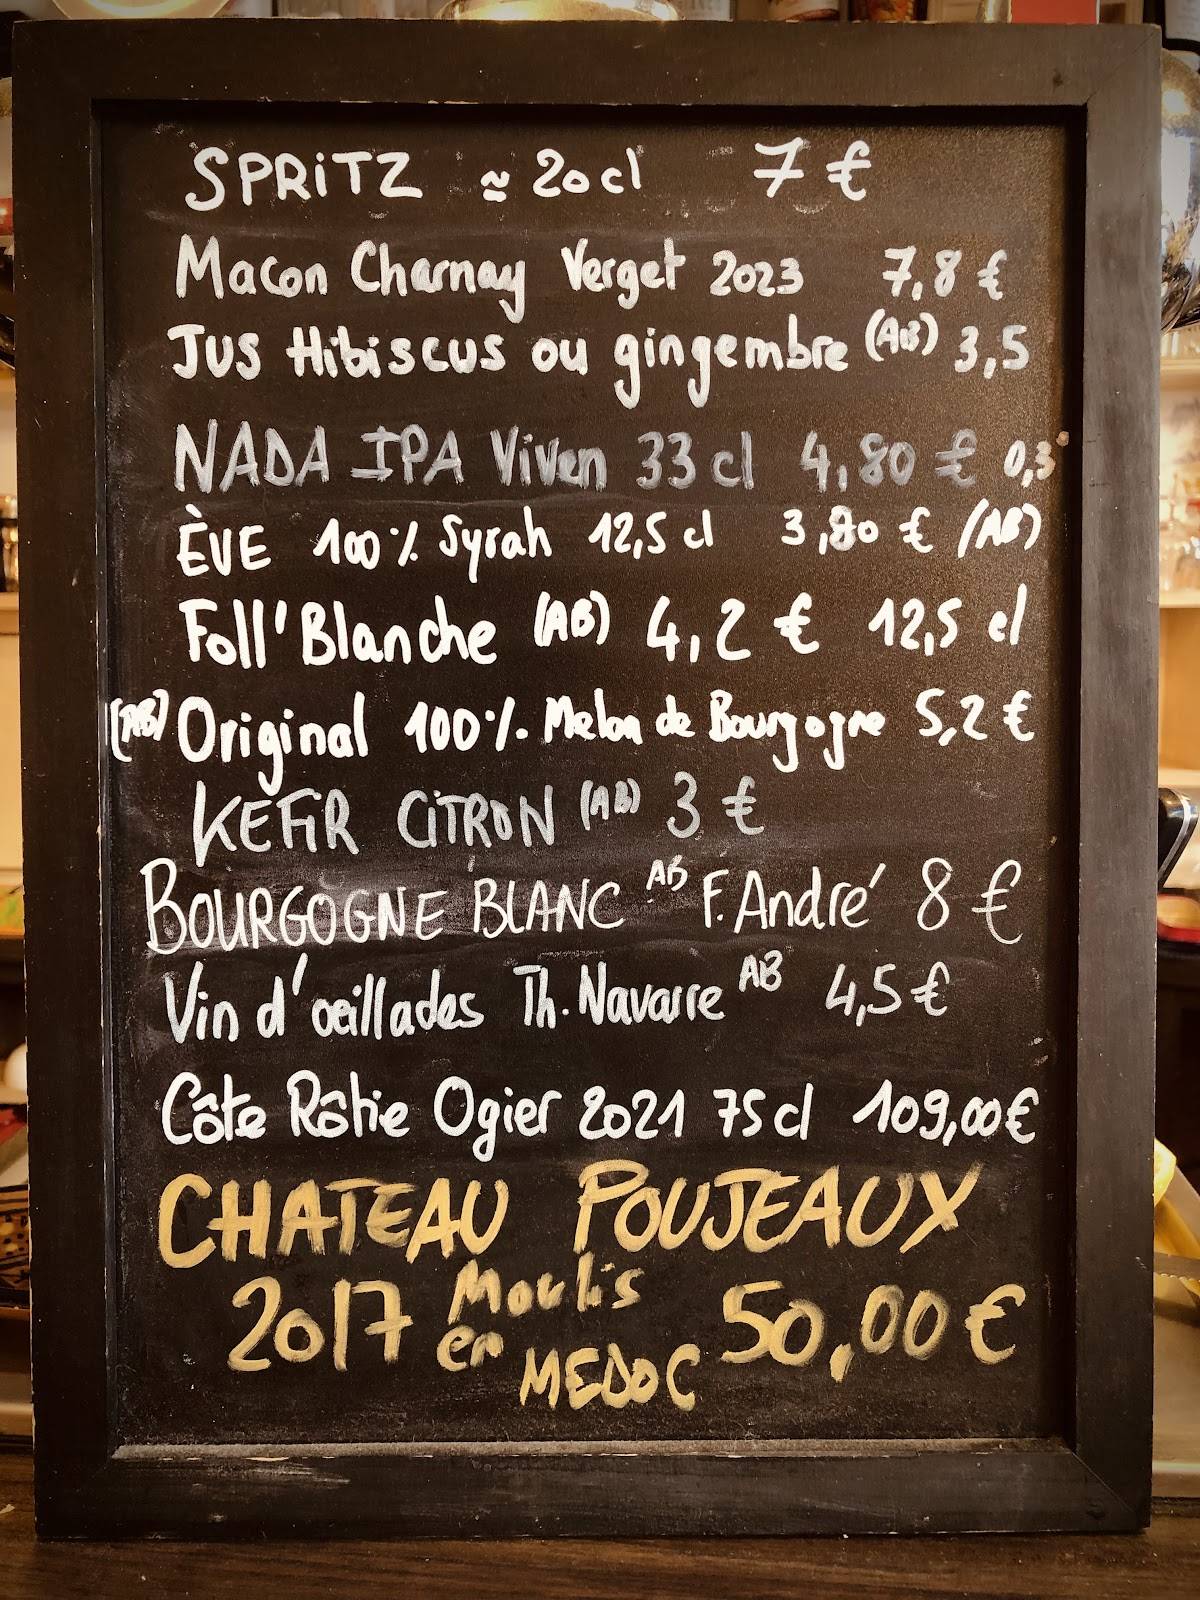 SPRITZ ≈ 20cl 7 €
Macon Charnay Verget 2023 7,8 €
Jus Hibiscus ou gingembre (AB) 3,5
NADA IPA Viven 33 cl 4,80 € 0,3°
ÈVE 100% Syrah 12,5 cl 3,80 € (AB)
Foll'Blanche (AB) 4,2 € 12,5 cl
(AB) Original 100% Melon de Bourgogne 5,2 €
KEFIR CITRON (AB) 3 €
BOURGOGNE BLANC AB F. André 8 €
Vin d'œillades Th. Navarre AB 4,5 €
Côte Rôtie Ogier 2021 75cl 109,00€
CHATEAU POUJEAUX
2017 Moulis en MEDOC 50,00 €